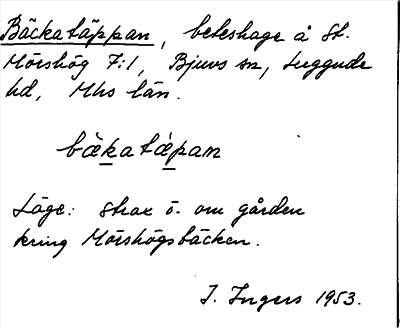 Bäckatäppan, beteshage å St.
Mörshög 7:1, Bjuvs sn, Luggude
hd, Mhs län.
bækatæpan
Läge: strax ö. om gården
kring Mörshögsbäcken.
I. Ingers 1953.